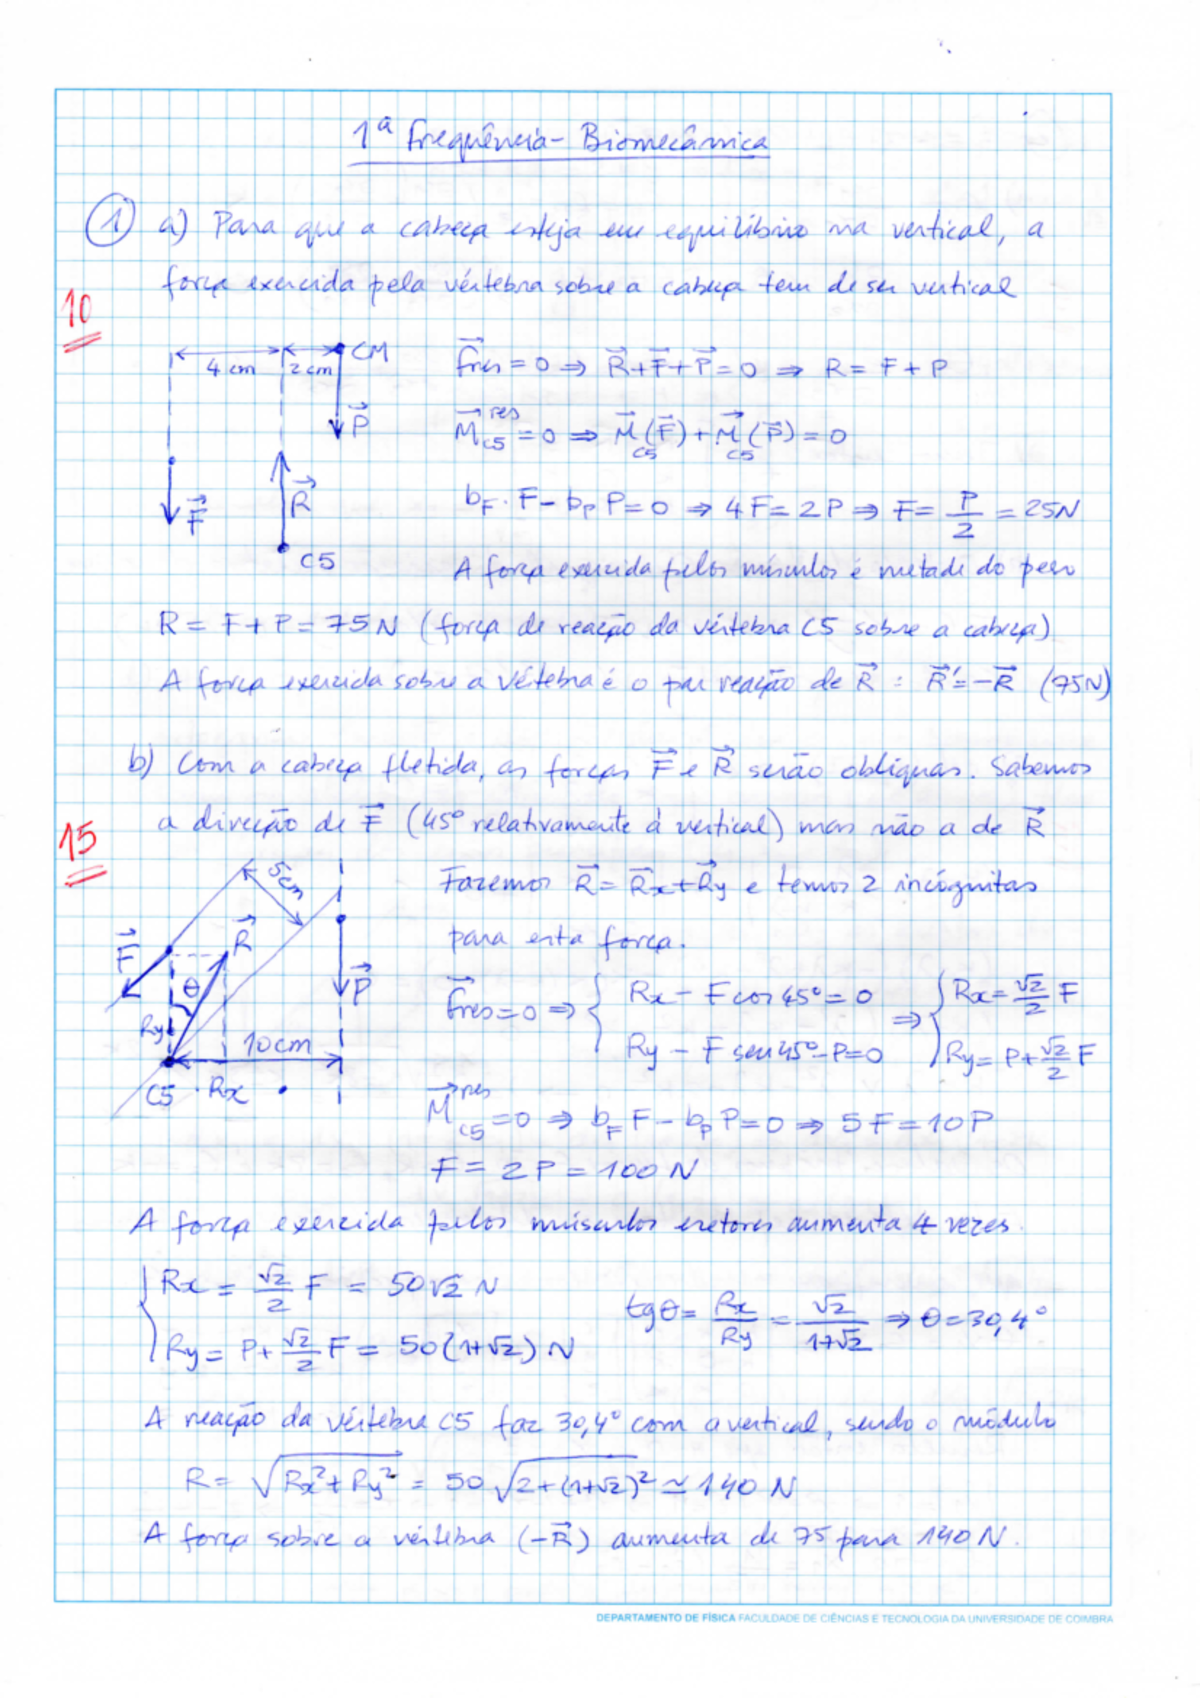 1ª Frequência - Biomecânica
① a) Para que a cabeça esteja em equilíbrio na vertical, a
força exercida pela vértebra sobre a cabeça tem de ser vertical
10
4 cm 2 cm CM
P⃗
F⃗
R⃗
C5
F⃗res = 0 ⇒ R⃗ + F⃗ + P⃗ = 0 ⇒ R = F + P
M⃗_C5^res = 0 ⇒ M⃗_C5(F⃗) + M⃗_C5(P⃗) = 0
b_F · F - b_P P = 0 ⇒ 4F = 2P ⇒ F = P/2 = 25N
A força exercida pelos músculos é metade do peso
R = F + P = 75N (força de reação da vértebra C5 sobre a cabeça)
A força exercida sobre a vértebra é o par reação de R⃗ : R⃗' = -R⃗ (75N)
b) Com a cabeça fletida, as forças F⃗ e R⃗ serão oblíquas. Sabemos
a direção de F⃗ (45º relativamente à vertical) mas não a de R⃗
15
5cm
F⃗
R⃗
θ
P⃗
Ry
10cm
C5 Rx
Fazemos R⃗ = R⃗x + R⃗y e temos 2 incógnitas
para esta força.
F⃗res = 0 ⇒ { Rx - F cos 45º = 0 ⇒ { Rx = √2/2 F
Ry - F sen 45º - P = 0 Ry = P + √2/2 F
M⃗_C5^res = 0 ⇒ b_F F - b_P P = 0 ⇒ 5F = 10P
F = 2P = 100 N
A força exercida pelos músculos eretores aumenta 4 vezes.
{ Rx = √2/2 F = 50√2 N
Ry = P + √2/2 F = 50(1+√2) N
tgθ = Rx/Ry = √2/(1+√2) ⇒ θ = 30,4º
A reação da vértebra C5 faz 30,4º com a vertical, sendo o módulo
R = √(Rx² + Ry²) = 50 √(2+(1+√2)²) ≃ 140 N
A força sobre a vértebra (-R⃗) aumenta de 75 para 140 N.
DEPARTAMENTO DE FÍSICA FACULDADE DE CIÊNCIAS E TECNOLOGIA DA UNIVERSIDADE DE COIMBRA